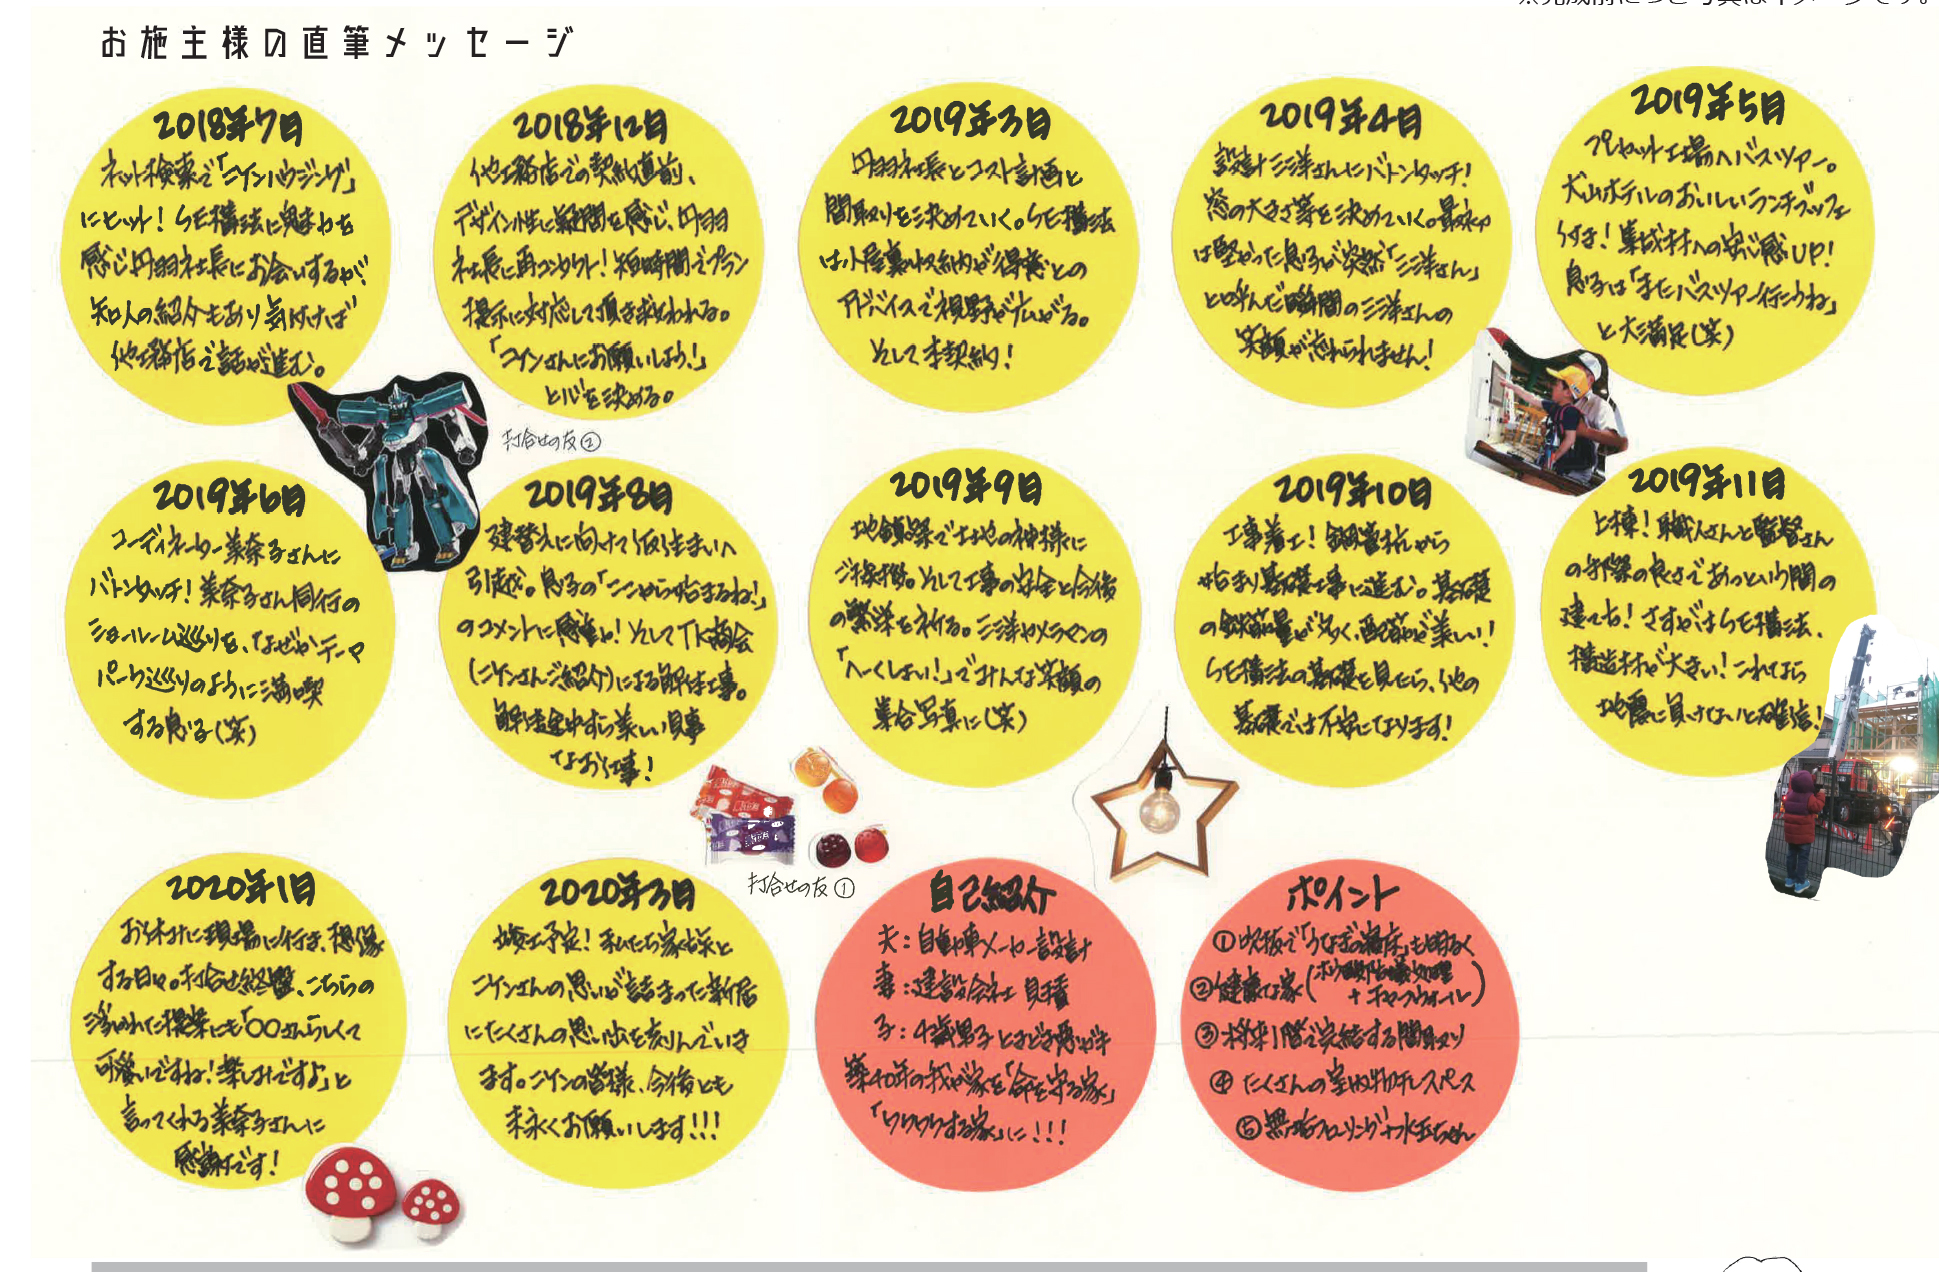 お施主様の直筆メッセージ
2018年7月
ネット検索で「ニケンハウジング」
にヒット！SE構法に魅力を
感じ丹羽社長にお会いするが、
知人の紹介もあり気付けば
他工務店で話が進む。
2018年12月
他工務店での契約直前、
デザイン性に疑問を感じ、丹羽
社長に再コンタクト！短時間でプラン
提示に対応して頂き救われる。
「ニケンさんにお願いしよう！」
と心を決める。
2019年3月
丹羽社長とコスト計画と
間取りを決めていく。SE構法
は小屋裏収納が得意との
アドバイスで視野が広がる。
そして本契約！
2019年4月
設計三洋さんにバトンタッチ！
窓の大きさ等を決めていく。最初
は堅かった息子が突然「三洋さん」
と呼んだ瞬間の三洋さんの
笑顔が忘れられません！
2019年5月
プレカット工場へバスツアー。
犬山ホテルのおいしいランチブッフェ
付き！集成材への安心感UP！
息子は「またバスツアー行こうね」
と大満足(笑)
打合せの友②
2019年6月
コーディネーター美奈子さんに
バトンタッチ！美奈子さん同行の
ショールーム巡りを、なぜかテーマ
パーク巡りのように満喫
する息子(笑)
2019年8月
建替えに向けて仮住まいへ
引越し。息子の「ここから始まるね！」
のコメントに感動！そしてTK商会
(ニケンさんご紹介)による解体工事。
解体途中すら美しい見事
なお仕事！
2019年9月
地鎮祭で土地の神様に
ご挨拶。そして工事の安全と今後
の繁栄を祈る。三洋カメラマンの
「へーくしょい！」でみんな笑顔の
集合写真に(笑)
2019年10月
工事着工！鋼管杭から
始まり基礎工事に進む。基礎
の鉄筋量が多く、配筋が美しい！
SE構法の基礎を見たら、他の
基礎では不安になります！
2019年11月
上棟！職人さんと監督さん
の手際の良さであっという間の
建て方！さすがはSE構法、
構造材が大きい！これなら
地震に負けないと確信！
打合せの友①
2020年1月
お休みに現場に行き、想像
する日々。打合せ終盤、こちらの
浮かれた提案にも「〇〇さんらしくて
可愛いですね！楽しみですよ」と
言ってくれる美奈子さんに
感謝です！
2020年3月
竣工予定！私たち家族と
ニケンさんの思いが詰まった新居
にたくさんの思い出を刻んでいき
ます。ニケンの皆様、今後とも
末永くお願いします！！！
自己紹介
夫：自動車メーカー設計
妻：建設会社 見積
子：4歳男子ときどき悪ガキ
築40年の我が家を「命を守る家」
「ワクワクする家」に！！！
ポイント
①吹抜で「うなぎの寝床」も明るく
②健康な家(ホウ酸防蟻処理
+チャフウォール)
③将来1階で完結する間取り
④たくさんの室内物干しスペース
⑤無垢フローリング+水玉ちゃん